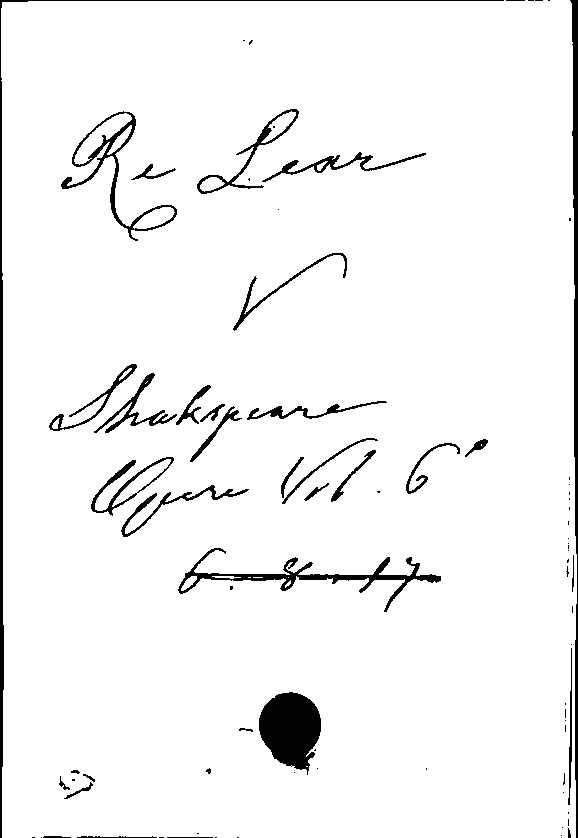 Re Lear
V
Shakspeare
Opere Vol. 6°
6. 8. 17